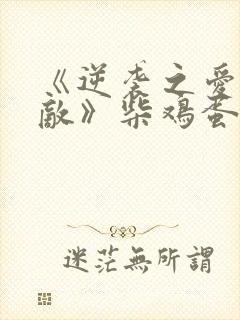 《逆袭之爱上情
敌》柴鸡蛋
迷茫無所謂